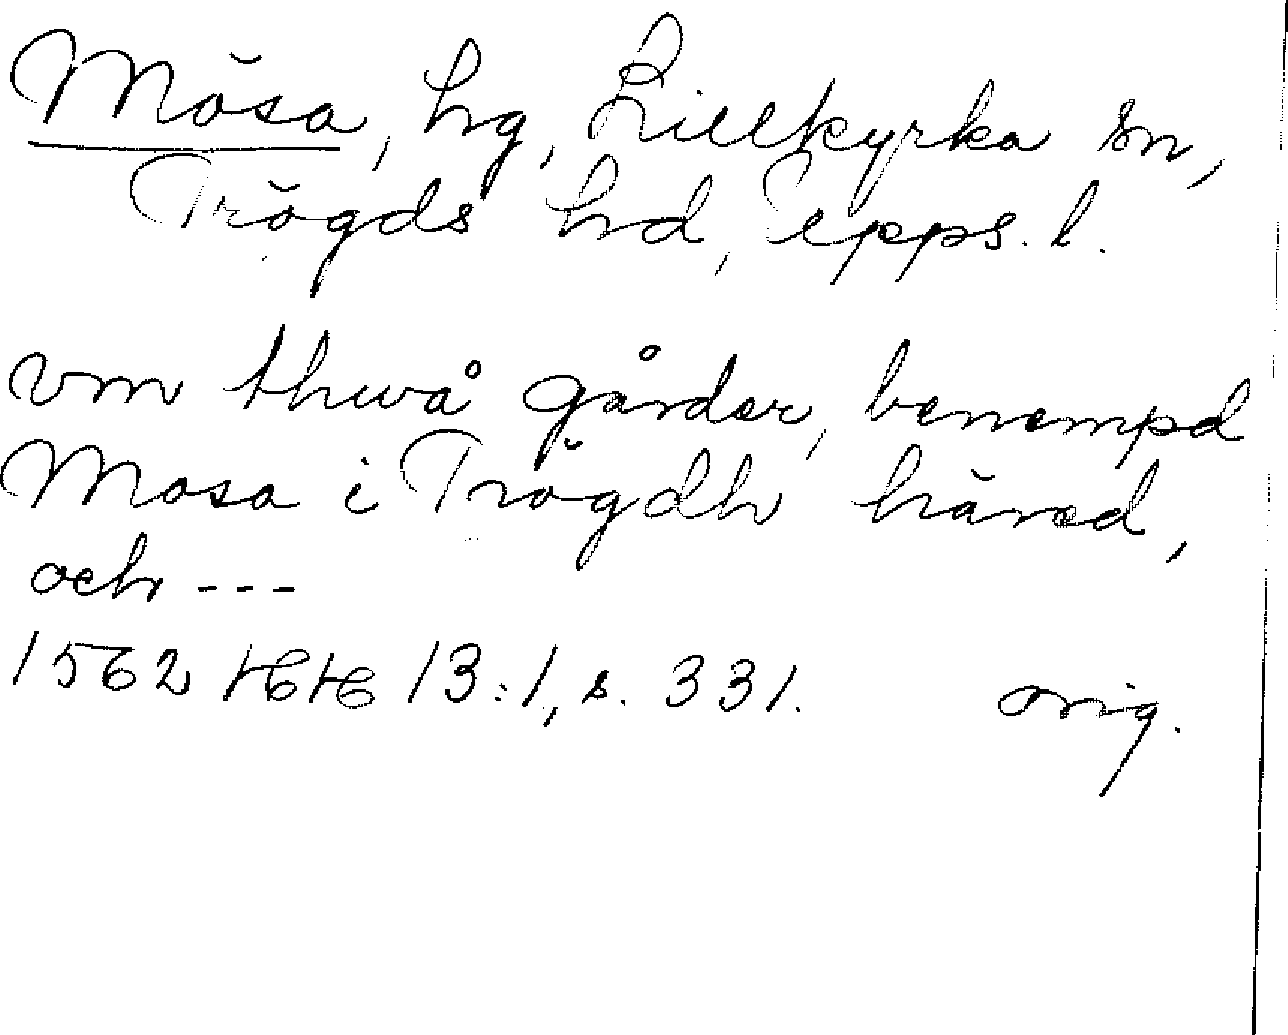 Mösa, hg, Lillkyrka sn,
Trögds hd, Upps. l.
vm thwå gårder, benempd
Mosa i Trögdh häred,
och ---
1562 HH 13:1, s. 331. orig.